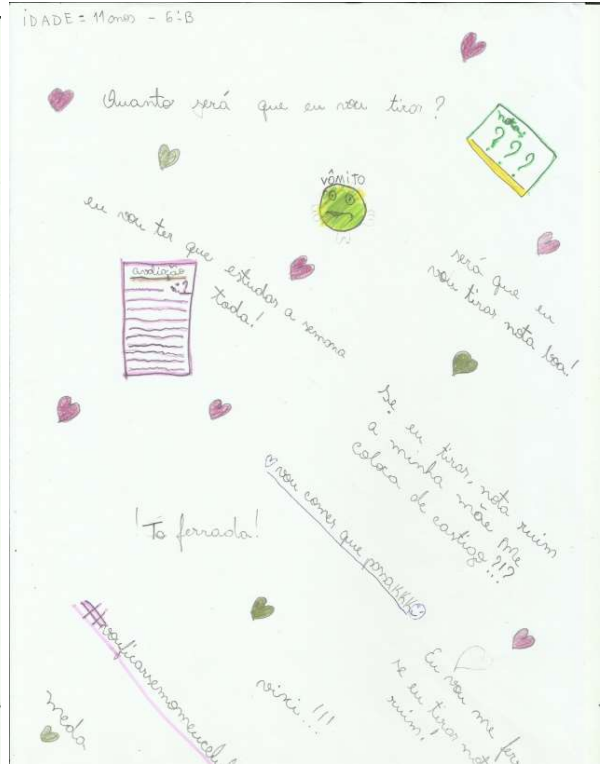 IDADE = 11 anos - 6ªB
Quanto será que eu vou tirar?
notas
? ? ?
VÔMITO
eu vou ter que estudar a semana
toda!
avaliação
será que eu
vou tirar nota boa!
Se eu tirar, nota ruim
a minha mãe me
coloca de castigo?!?
vou comer que passa KKK
! To ferrada!
vixi...!!!
Eu vou me
se eu tirar
ruim!
meda